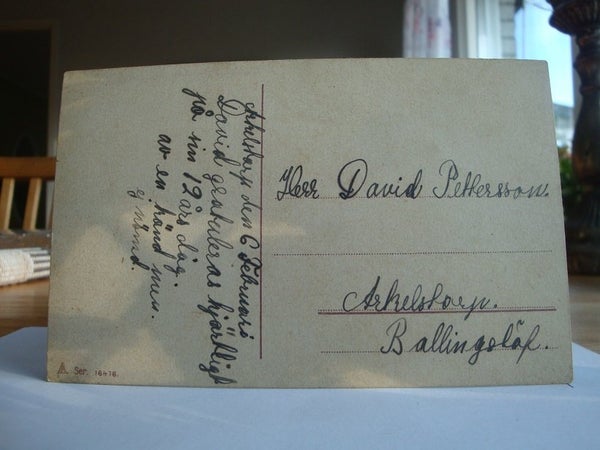 Arkelstorp den 6 Februari
David gratuleras hjärtligt
på sin 12 års dag.
av en känd men.
ej nämd.
Herr David Pettersson.
Arkelstorp.
Ballingslöf.
Ser. 16416.